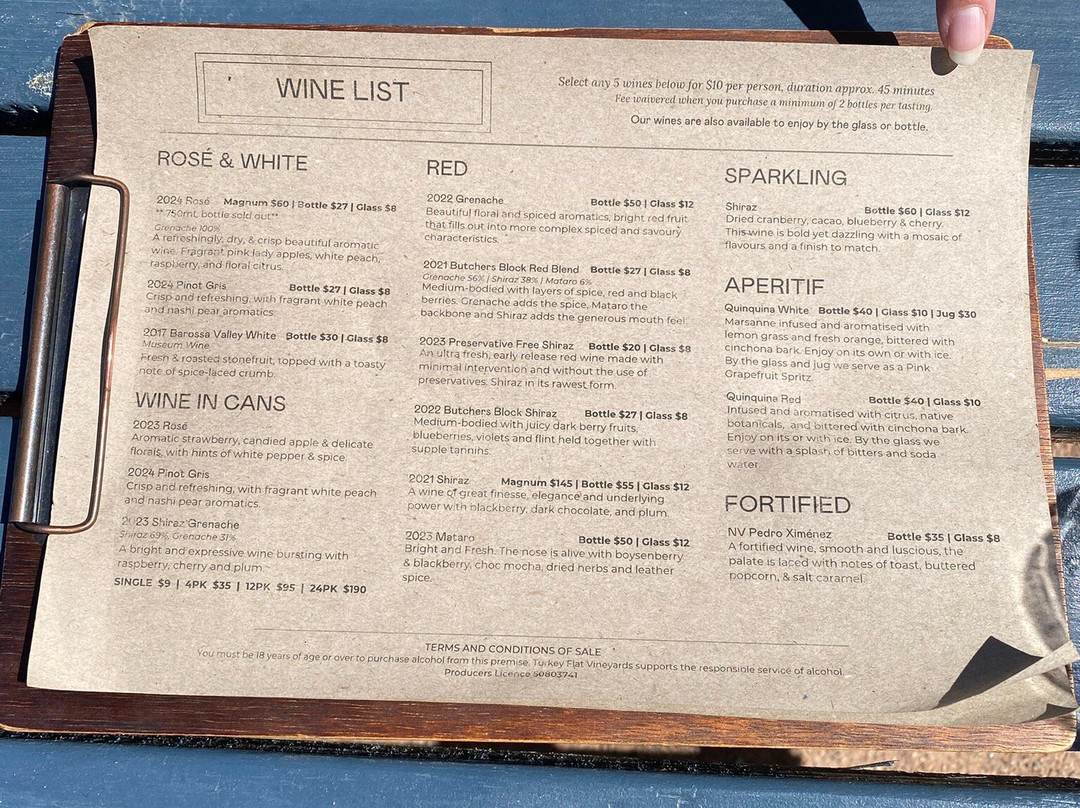 WINE LIST
Select any 5 wines below for $10 per person, duration approx. 45 minutes
Fee waivered when you purchase a minimum of 2 bottles per tasting.
Our wines are also available to enjoy by the glass or bottle.
ROSÉ & WHITE
2024 Rosé Magnum $60 | Bottle $27 | Glass $8
** 750mL bottle sold out**
Grenache 100%
A refreshingly, dry, & crisp beautiful aromatic
wine. Fragrant pink lady apples, white peach,
raspberry, and floral citrus.
2024 Pinot Gris Bottle $27 | Glass $8
Crisp and refreshing, with fragrant white peach
and nashi pear aromatics.
2017 Barossa Valley White Bottle $30 | Glass $8
Museum Wine
Fresh & roasted stonefruit, topped with a toasty
note of spice-laced crumb.
WINE IN CANS
2023 Rosé
Aromatic strawberry, candied apple & delicate
florals, with hints of white pepper & spice.
2024 Pinot Gris
Crisp and refreshing, with fragrant white peach
and nashi pear aromatics.
2023 Shiraz Grenache
Shiraz 69%, Grenache 31%
A bright and expressive wine bursting with
raspberry, cherry and plum.
SINGLE $9 | 4PK $35 | 12PK $95 | 24PK $190
RED
2022 Grenache Bottle $50 | Glass $12
Beautiful floral and spiced aromatics, bright red fruit
that fills out into more complex spiced and savoury
characteristics.
2021 Butchers Block Red Blend Bottle $27 | Glass $8
Grenache 56% | Shiraz 38% | Mataro 6%
Medium-bodied with layers of spice, red and black
berries. Grenache adds the spice, Mataro the
backbone and Shiraz adds the generous mouth feel.
2023 Preservative Free Shiraz Bottle $20 | Glass $8
An ultra fresh, early release red wine made with
minimal intervention and without the use of
preservatives. Shiraz in its rawest form.
2022 Butchers Block Shiraz Bottle $27 | Glass $8
Medium-bodied with juicy dark berry fruits,
blueberries, violets and flint held together with
supple tannins.
2021 Shiraz Magnum $145 | Bottle $55 | Glass $12
A wine of great finesse, elegance and underlying
power with blackberry, dark chocolate, and plum.
2023 Mataro Bottle $50 | Glass $12
Bright and Fresh. The nose is alive with boysenberry
& blackberry, choc mocha, dried herbs and leather
spice.
SPARKLING
Shiraz Bottle $60 | Glass $12
Dried cranberry, cacao, blueberry & cherry.
This wine is bold yet dazzling with a mosaic of
flavours and a finish to match.
APERITIF
Quinquina White Bottle $40 | Glass $10 | Jug $30
Marsanne infused and aromatised with
lemon grass and fresh orange, bittered with
cinchona bark. Enjoy on its own or with ice.
By the glass and jug we serve as a Pink
Grapefruit Spritz.
Quinquina Red Bottle $40 | Glass $10
Infused and aromatised with citrus, native
botanicals, and bittered with cinchona bark.
Enjoy on its or with ice. By the glass we
serve with a splash of bitters and soda
water.
FORTIFIED
NV Pedro Ximénez Bottle $35 | Glass $8
A fortified wine, smooth and luscious, the
palate is laced with notes of toast, buttered
popcorn, & salt caramel.
TERMS AND CONDITIONS OF SALE
You must be 18 years of age or over to purchase alcohol from this premise. Turkey Flat Vineyards supports the responsible service of alcohol.
Producers Licence 50803741